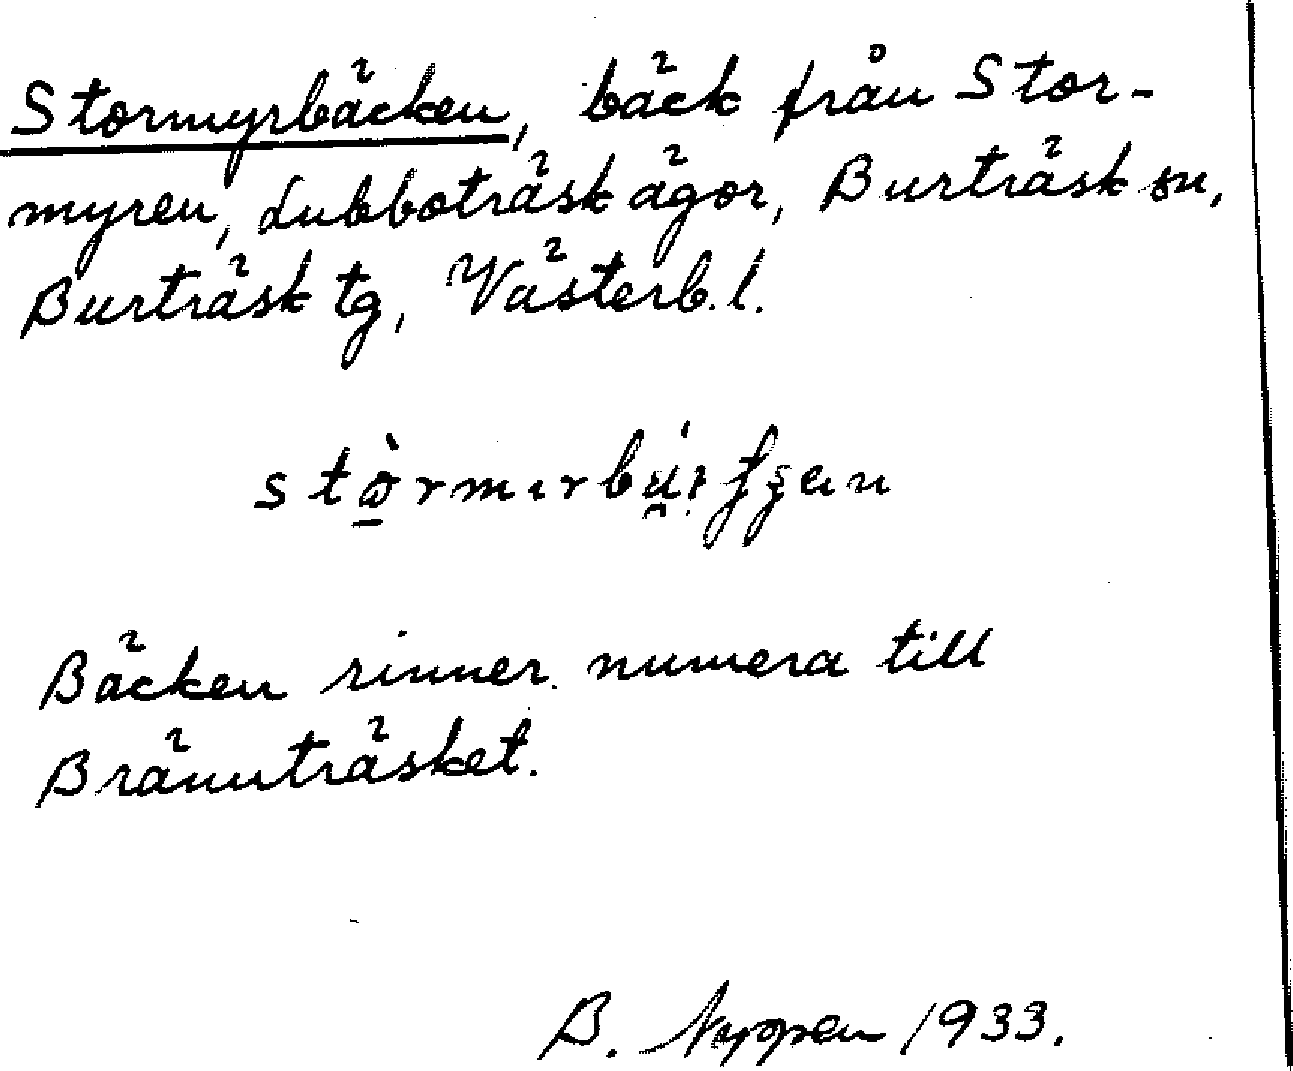 Stormyrbäcken, bäck från Stor-
myren, Lubboträsk ägor, Burträsk sn,
Burträsk tg, Västerb. l.
Bäcken rinner numera till
Brännträsket.
B. 1933.